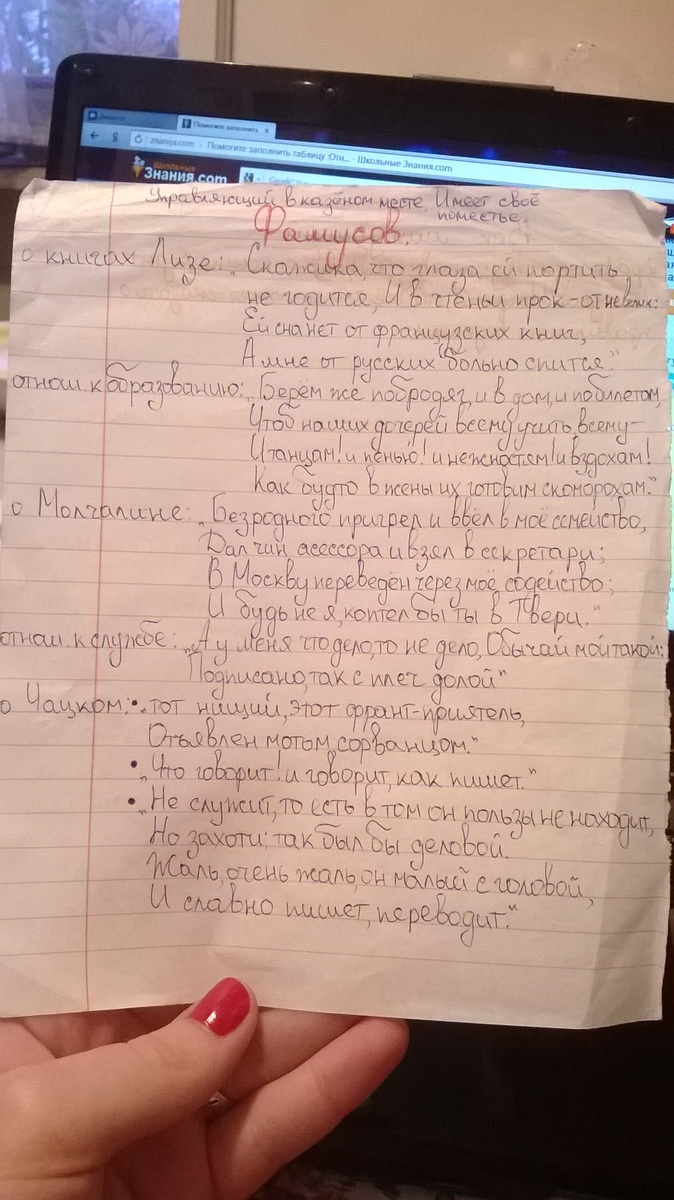 Помогите заполнить
znanija.com
Помогите заполнить таблицу :Отн... - Школьные Знания.com
Школьные
Знания.com
Управляющий в казённом месте. Имеет своё
поместье.
Фамусов.
о книгах Лизе: „Скажи-ка, что глаза ей портить
не годится, И в чтеньи прок-от невелик:
Ей сна нет от французских книг,
А мне от русских больно спится."
отнош. к образованию: „Берём же побродяг, и в дом, и по билетам,
Чтоб наших дочерей всему учить, всему-
И танцам! и пенью! и нежностям! и вздохам!
Как будто в жены их готовим скоморохам."
о Молчалине: „Безродного пригрел и ввёл в моё семейство,
Дал чин асессора и взял в секретари;
В Москву переведён через моё содейство;
И будь не я, коптел бы ты в Твери."
отнош. к службе: „А у меня что дело, то не дело, Обычай мой такой:
Подписано, так с плеч долой"
о Чацком: • „тот нищий, этот франт-приятель,
Отъявлен мотом, сорванцом."
• „Что говорит! и говорит, как пишет."
• „Не служит, то есть в том он пользы не находит,
Но захоти: так был бы деловой.
Жаль, очень жаль, он малый с головой,
И славно пишет, переводит."